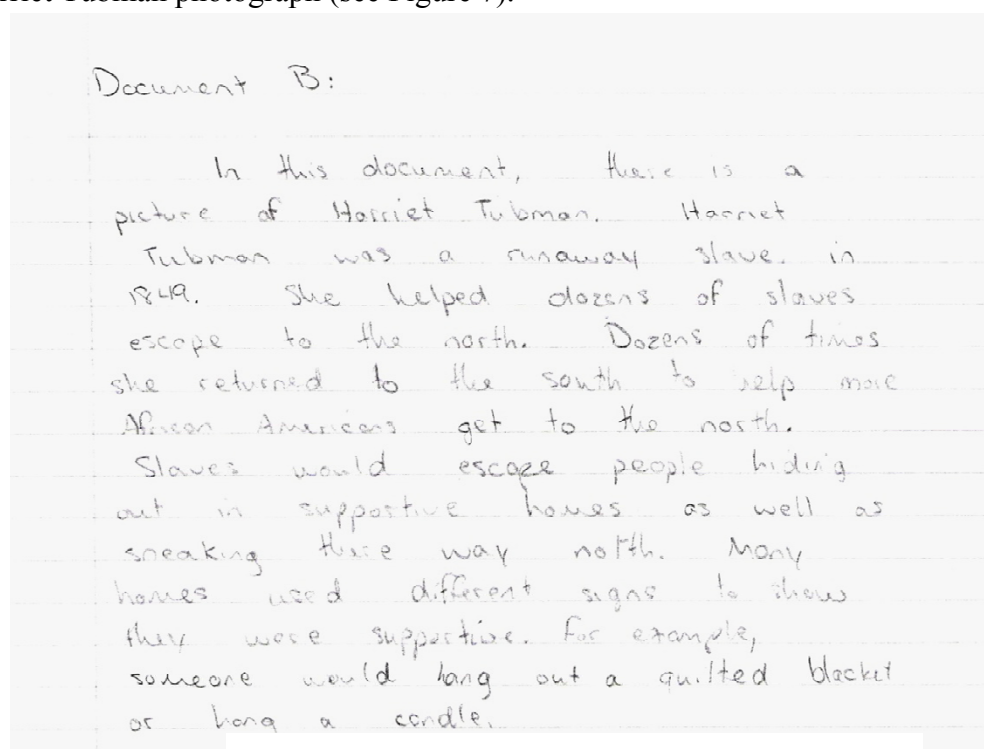 rriet Tubman photograph (see Figure 7).
Document B:
In this document, there is a
picture of Harriet Tubman. Harriet
Tubman was a runaway slave. in
1849. She helped dozens of slaves
escape to the north. Dozens of times
she returned to the south to help more
African Americans get to the north.
Slaves would escape people hiding
out in supportive homes as well as
sneaking there way north. Many
homes used different signs to show
they were supportive. For example,
someone would hang out a quilted blacket
or hang a candle.